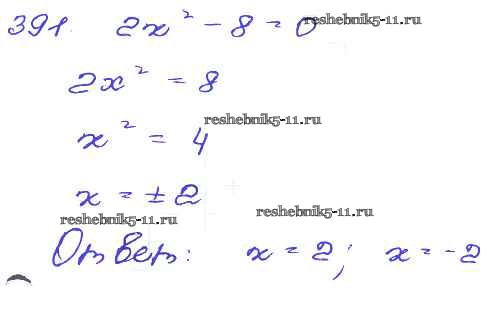 391. 2x² - 8 = 0
reshebnik5-11.ru
2x² = 8
reshebnik5-11.ru
x² = 4
x = ±2
reshebnik5-11.ru
reshebnik5-11.ru
Ответ: x = 2; x = -2